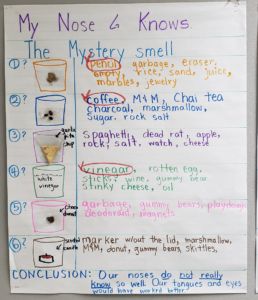 My Nose Knows
The Mystery smell
① ?
penny, garbage, eraser,
empty, rice, sand, juice,
marbles, jewelry
② ?
coffee, M&M, Chai tea
charcoal, marshmallow,
Sugar, rock salt
③ ?
garlic
chip
spaghetti, dead rat, apple,
rock, salt, watch, cheese
④ ?
white
vinegar
vinegar, rotten egg,
sticks, wine, gummy bear
stinky cheese, oil
⑤ ?
choc.
donut
garbage, gummy bears, playdough
deodorant, magnets
⑥ ?
candle
marker w/out the lid, marshmallow,
M&M, donut, gummy bears, skittles,
CONCLUSION: Our noses do not really
know so well. Our tongues and eyes
would have worked better.